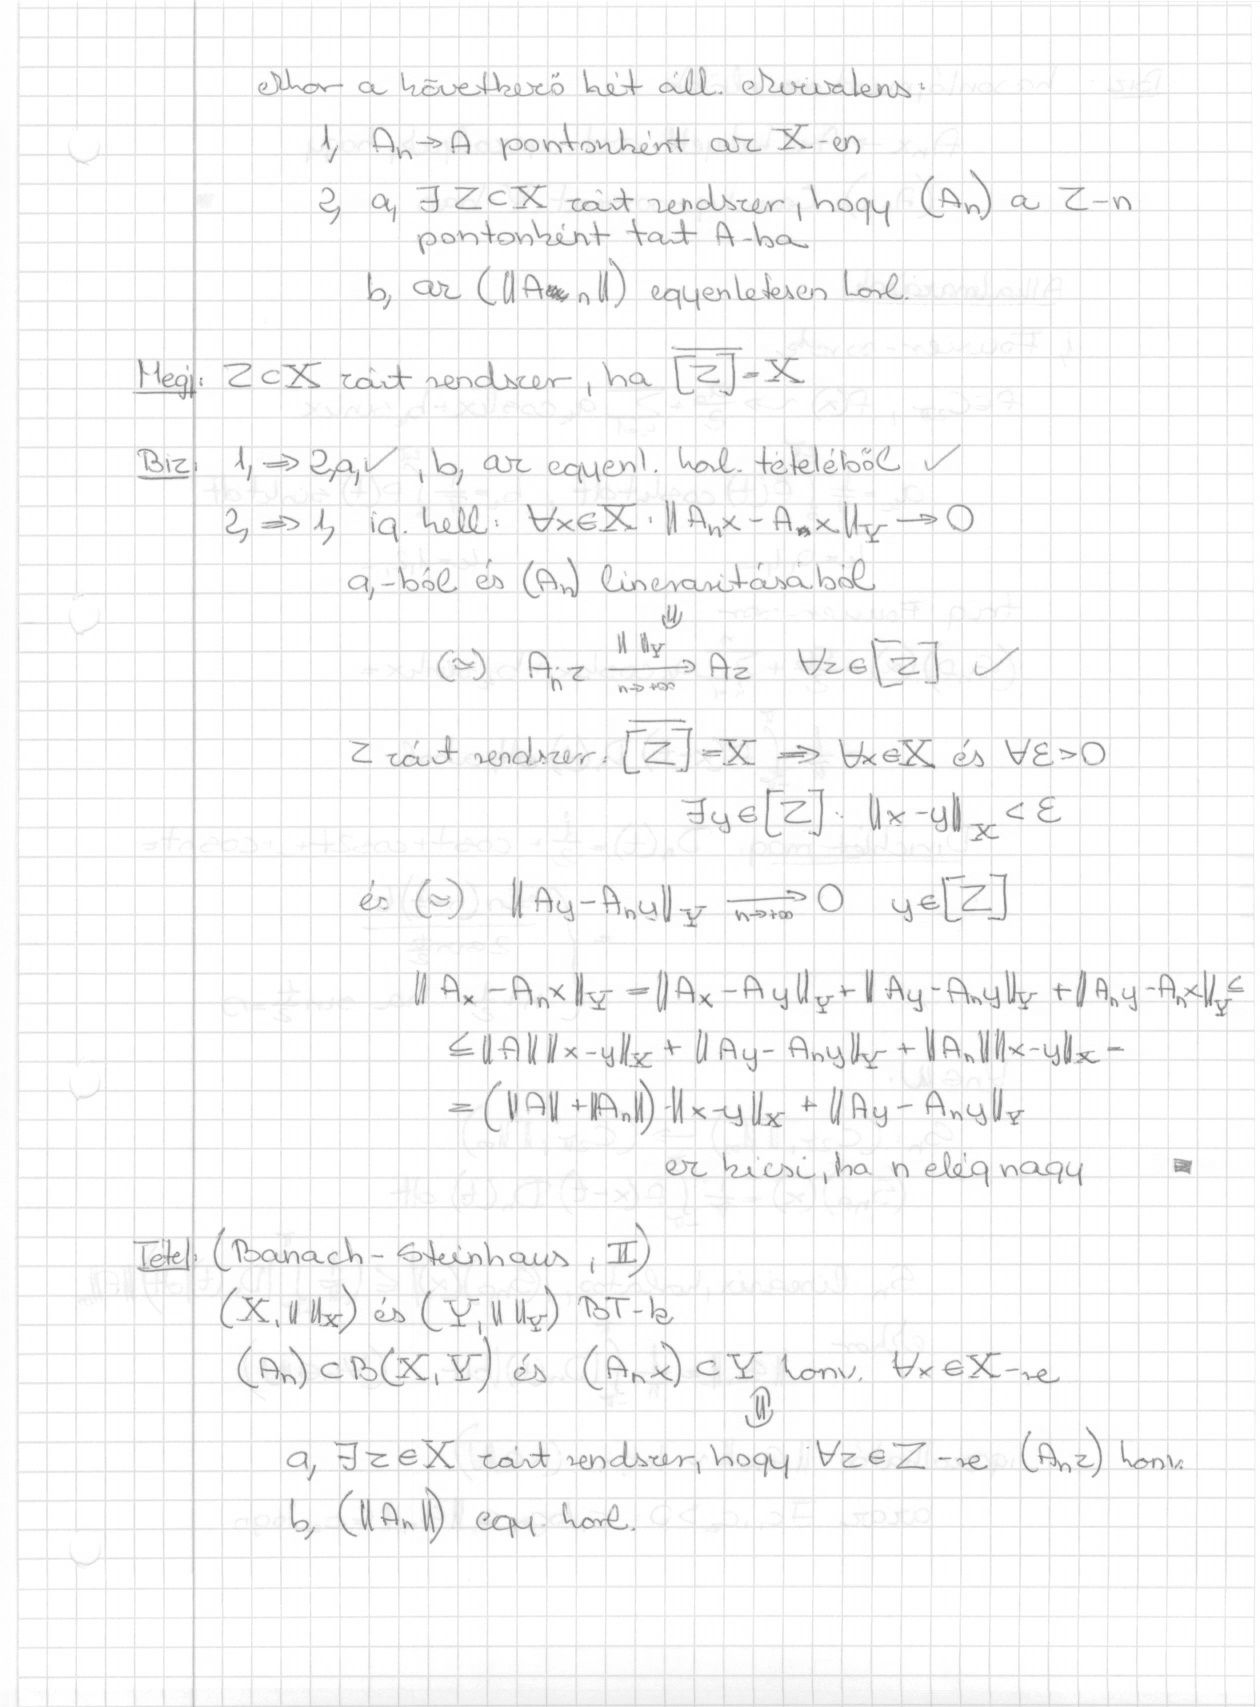 Akkor a következő két áll. ekvivalens:
1, Aₙ → A pontonként az X-en
2, a, ∃ Z ⊂ X zárt rendszer, hogy (Aₙ) a Z-n
pontonként tart A-ba
b, az (‖Aₙ‖) egyenletesen korl.
Megj: Z ⊂ X zárt rendszer, ha \overline{[Z]} = X
Biz: 1, ⇒ 2, a, ✓, b, az egyenl. korl. tételéből ✓
2, ⇒ 1, ig. kell: ∀x∈X: ‖Aₙx − Ax‖_Y → 0
a,-ból és (Aₙ) linearitásából
⇓
(≈) Aₙz \xrightarrow[n→+∞]{‖ ‖_Y} Az ∀z∈[Z] ✓
Z zárt rendszer: \overline{[Z]} = X ⇒ ∀x∈X és ∀ε>0
∃y∈[Z]: ‖x−y‖_X < ε
és (≈) ‖Ay − Aₙy‖_Y \xrightarrow[n→+∞]{} 0 y∈[Z]
‖Ax − Aₙx‖_Y = ‖Ax − Ay‖_Y + ‖Ay − Aₙy‖_Y + ‖Aₙy − Aₙx‖_Y ≤
≤ ‖A‖ ‖x−y‖_X + ‖Ay − Aₙy‖_Y + ‖Aₙ‖‖x−y‖_X =
= (‖A‖ + ‖Aₙ‖)·‖x−y‖_X + ‖Ay − Aₙy‖_Y
ez kicsi, ha n elég nagy ■
Tétel: (Banach-Steinhaus, II)
(X, ‖ ‖_X) és (Y, ‖ ‖_Y) BT-k
(Aₙ) ⊂ B(X, Y) és (Aₙx) ⊂ Y konv. ∀x∈X-re
⇕
a, ∃ z ∈ X zárt rendszer, hogy ∀z∈Z-re (Aₙz) konv.
b, (‖Aₙ‖) egy. korl.